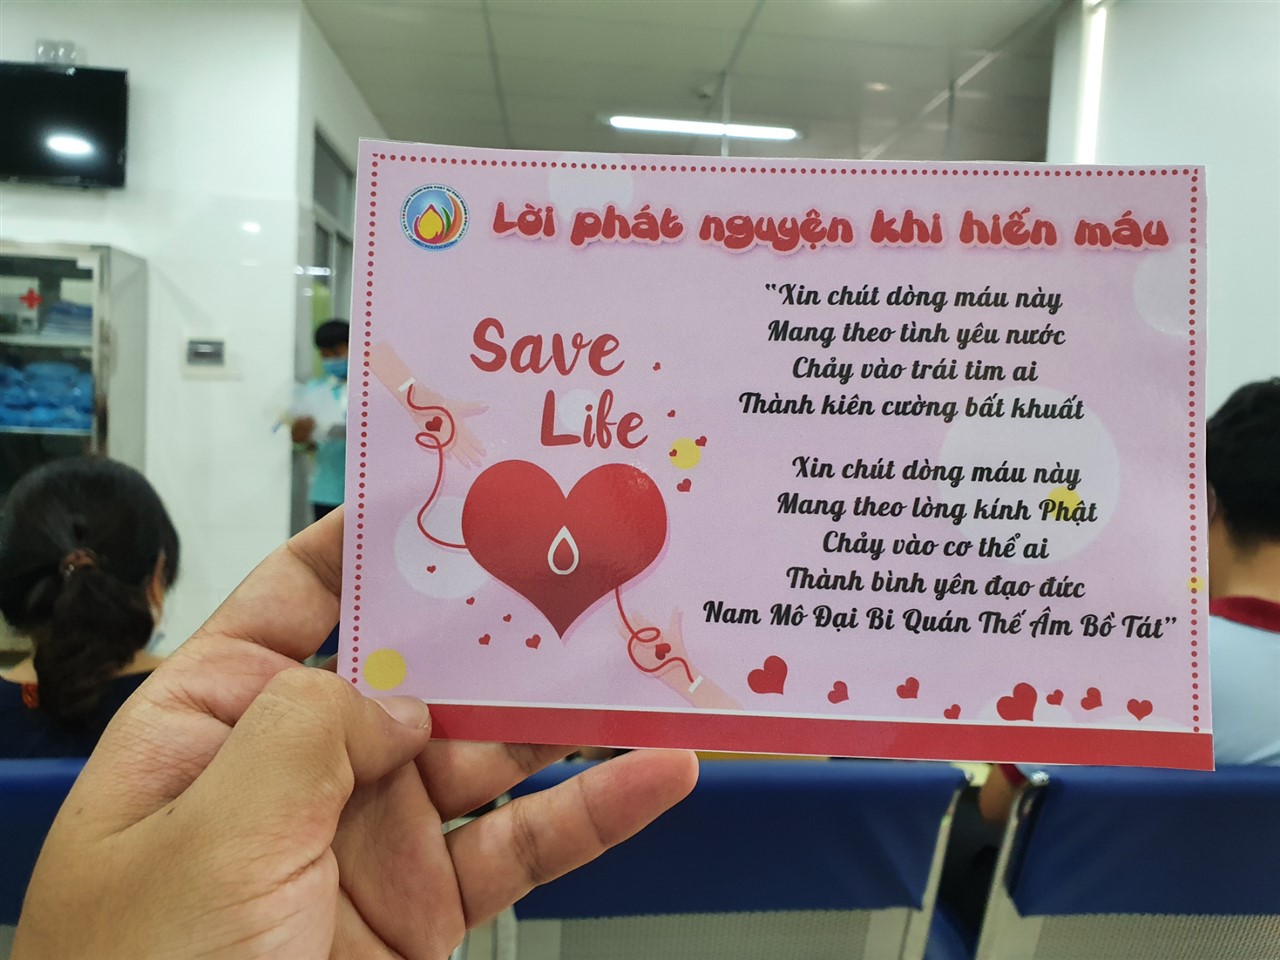 Lời phát nguyện khi hiến máu
Save
Life
“Xin chút dòng máu này
Mang theo tình yêu nước
Chảy vào trái tim ai
Thành kiên cường bất khuất
Xin chút dòng máu này
Mang theo lòng kính Phật
Chảy vào cơ thể ai
Thành bình yên đạo đức
Nam Mô Đại Bi Quán Thế Âm Bồ Tát”